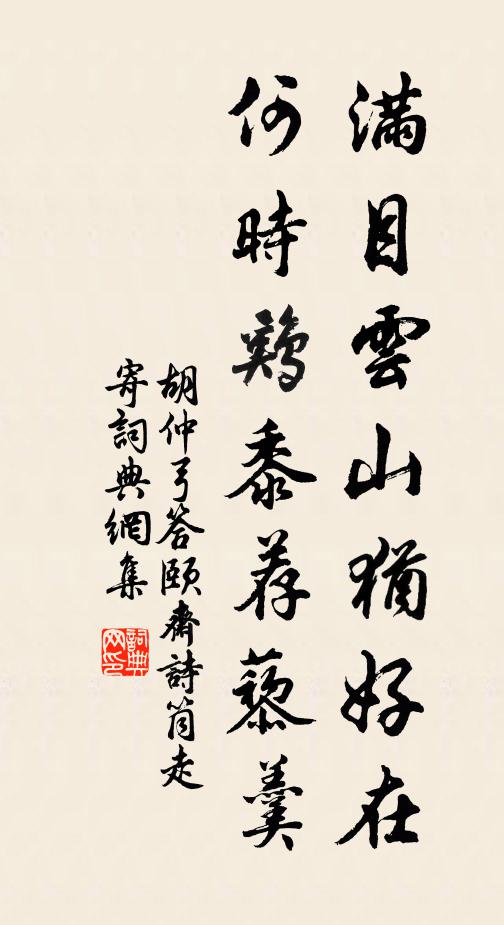 滿目雲山猶好在
何時鷄黍荐藜羹
胡仲弓答頤齋詩筒走
寄詞典網集
詞典網印